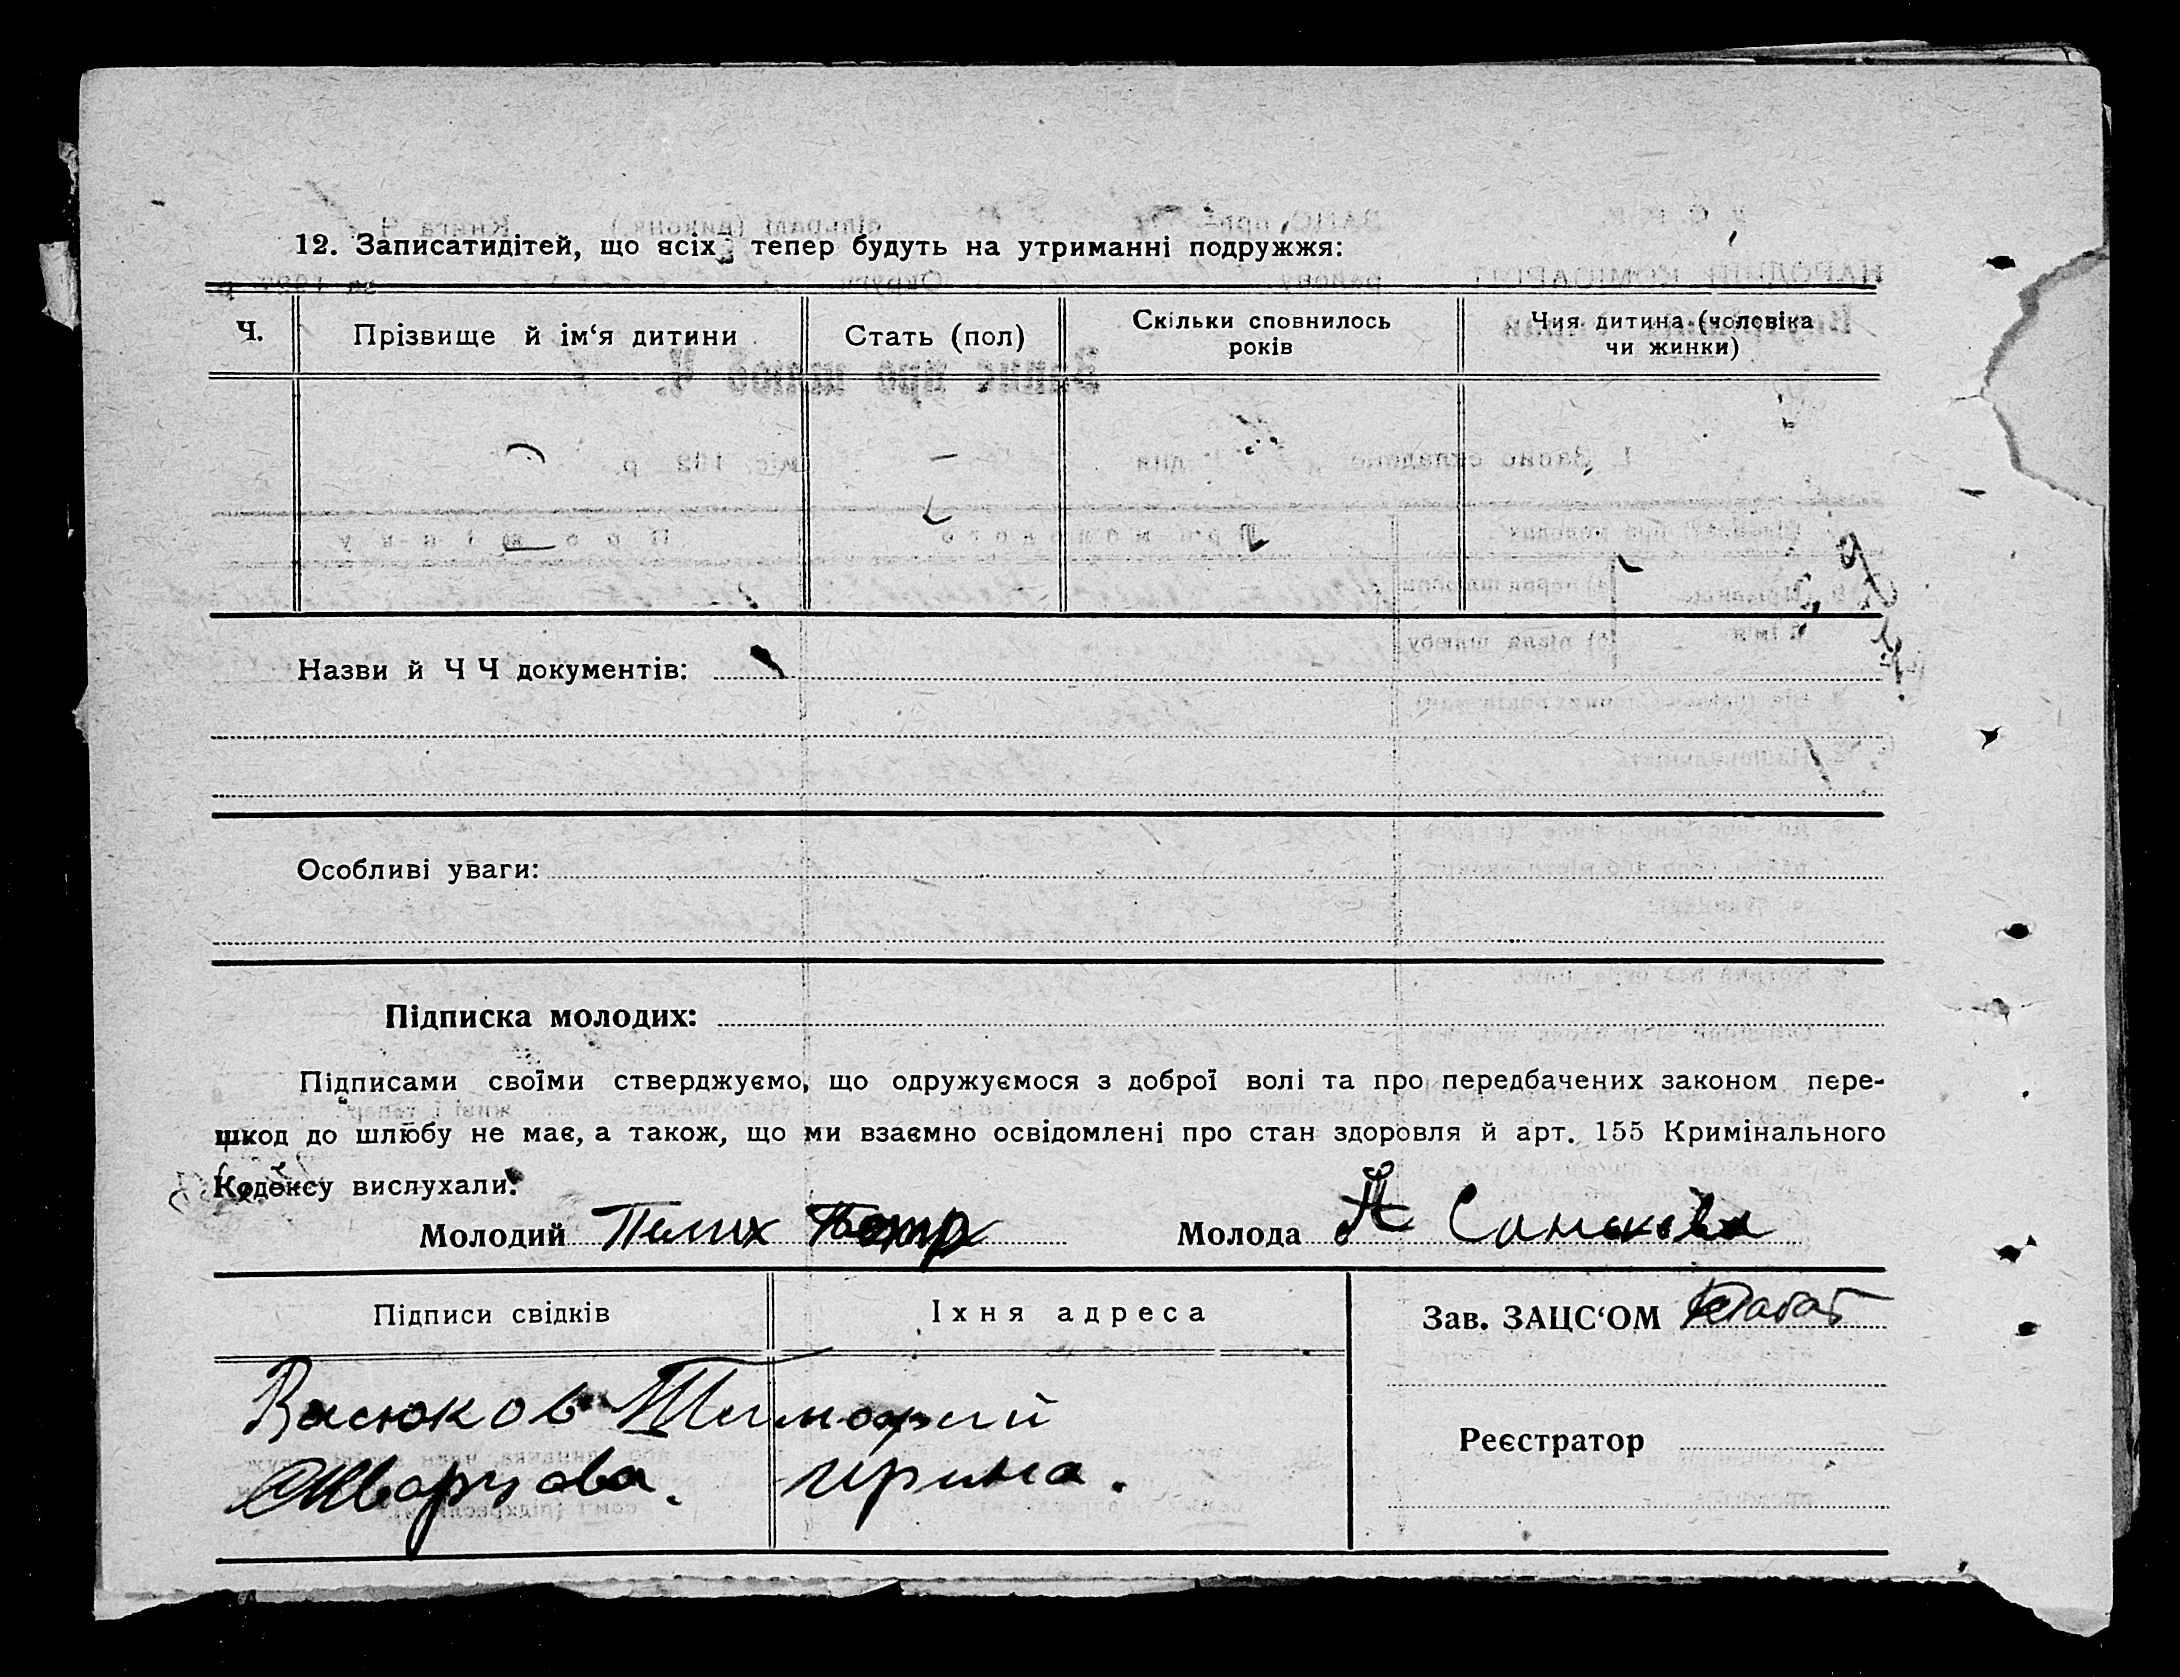 12. Записатидітей, що всіх тепер будуть на утриманні подружжя:
Ч. Прізвище й ім‘я дитини Стать (пол) Скільки сповнилось років Чия дитина (чоловіка чи жинки)
Назви й Ч Ч документів:
Особливі уваги:
Підписка молодих:
Підписами своїми стверджуємо, що одружуємося з доброї волі та про передбачених законом пере-
шкод до шлюбу не має, а також, що ми взаємно освідомлені про стан здоровля й арт. 155 Кримінального
Кодексу вислухали.
Молодий Пелих Петр Молода А
Підписи свідків Їхня адреса Зав. ЗАЦС‘ОМ
Васюков Тимофий
Реєстратор
Шварцова. Ирина.